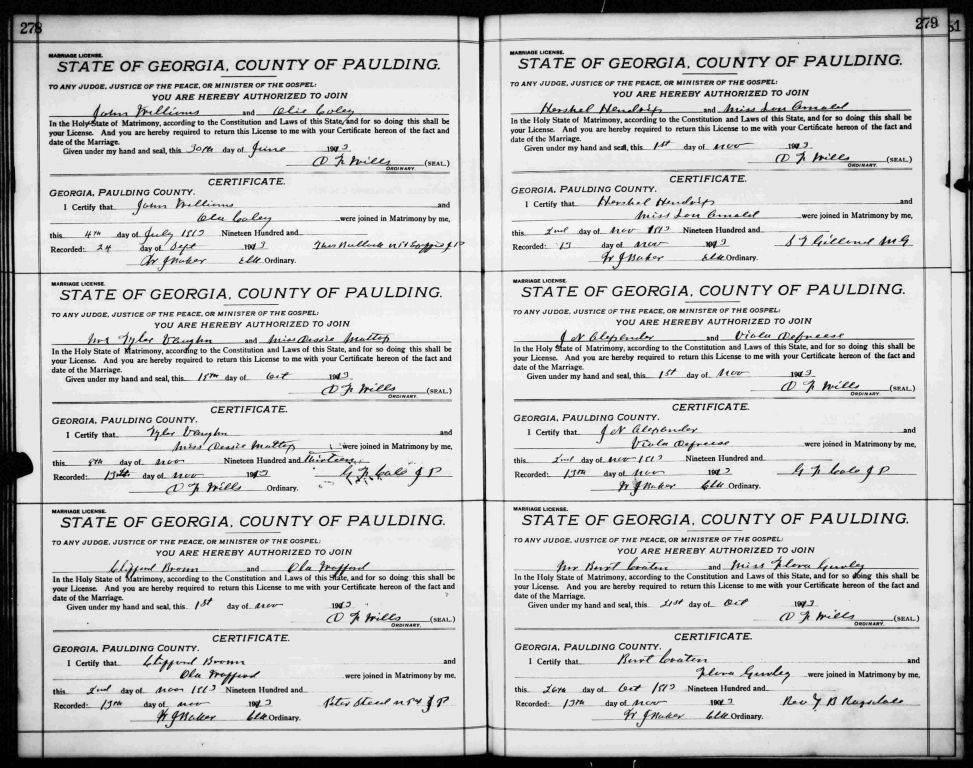 278
MARRIAGE LICENSE.
STATE OF GEORGIA, COUNTY OF PAULDING.
TO ANY JUDGE, JUSTICE OF THE PEACE, OR MINISTER OF THE GOSPEL:
YOU ARE HEREBY AUTHORIZED TO JOIN
John Williams and Olie Coley
In the Holy State of Matrimony, according to the Constitution and Laws of this State, and for so doing this shall be
your License. And you are hereby required to return this License to me with your Certificate hereon of the fact and
date of the Marriage.
Given under my hand and seal, this 30th day of June 1913
O F Wills (SEAL.)
ORDINARY.
CERTIFICATE.
GEORGIA, PAULDING COUNTY.
I Certify that John Williams and
Coley were joined in Matrimony by me,
this 4th day of July 1913 Nineteen Hundred and
Recorded: 24 day of Sept 1913 Bullock J P
W J Baker Clk Ordinary.
MARRIAGE LICENSE.
STATE OF GEORGIA, COUNTY OF PAULDING.
TO ANY JUDGE, JUSTICE OF THE PEACE, OR MINISTER OF THE GOSPEL:
YOU ARE HEREBY AUTHORIZED TO JOIN
Mr Tyler Vaughn and Miss Dessie Mattox
In the Holy State of Matrimony, according to the Constitution and Laws of this State, and for so doing this shall be
your License. And you are hereby required to return this License to me with your Certificate hereon of the fact and
date of the Marriage.
Given under my hand and seal, this 18th day of Oct 1913
O F Wills (SEAL.)
ORDINARY.
CERTIFICATE.
GEORGIA, PAULDING COUNTY.
I Certify that Tyler Vaughn and
Miss Dessie Mattox were joined in Matrimony by me,
this 8th day of Nov Nineteen Hundred and Thirteen
Recorded: 13th day of Nov 1913 G F Cole J P
O F Wills Ordinary.
MARRIAGE LICENSE.
STATE OF GEORGIA, COUNTY OF PAULDING.
TO ANY JUDGE, JUSTICE OF THE PEACE, OR MINISTER OF THE GOSPEL:
YOU ARE HEREBY AUTHORIZED TO JOIN
Clifford Brown and Ola Wofford
In the Holy State of Matrimony, according to the Constitution and Laws of this State, and for so doing this shall be
your License. And you are hereby required to return this License to me with your Certificate hereon of the fact and
date of the Marriage.
Given under my hand and seal, this 1st day of Nov 1913
O F Wills (SEAL.)
ORDINARY.
CERTIFICATE.
GEORGIA, PAULDING COUNTY.
I Certify that Clifford Brown and
Ola Wofford were joined in Matrimony by me,
this 2nd day of Nov 1913 Nineteen Hundred and
Recorded: 13th day of Nov 1913 Peter J P
W J Baker Clk Ordinary.
279
51
MARRIAGE LICENSE.
STATE OF GEORGIA, COUNTY OF PAULDING.
TO ANY JUDGE, JUSTICE OF THE PEACE, OR MINISTER OF THE GOSPEL:
YOU ARE HEREBY AUTHORIZED TO JOIN
Hershel Hendrix and Miss Lou Arnold
In the Holy State of Matrimony, according to the Constitution and Laws of this State, and for so doing this shall be
your License. And you are hereby required to return this License to me with your Certificate hereon of the fact and
date of the Marriage.
Given under my hand and seal, this 1st day of Nov 1913
O F Wills (SEAL.)
ORDINARY.
CERTIFICATE.
GEORGIA, PAULDING COUNTY.
I Certify that Hershel Hendrix and
Miss Lou Arnold were joined in Matrimony by me,
this 2nd day of Nov 1913 Nineteen Hundred and
Recorded: 13 day of Nov 1913 M G
W J Baker Clk Ordinary.
MARRIAGE LICENSE.
STATE OF GEORGIA, COUNTY OF PAULDING.
TO ANY JUDGE, JUSTICE OF THE PEACE, OR MINISTER OF THE GOSPEL:
YOU ARE HEREBY AUTHORIZED TO JOIN
J N Alexander and Viola Defreese
In the Holy State of Matrimony, according to the Constitution and Laws of this State, and for so doing this shall be
your License. And you are hereby required to return this License to me with your Certificate hereon of the fact and
date of the Marriage.
Given under my hand and seal, this 1st day of Nov 1913
O F Wills (SEAL.)
ORDINARY.
CERTIFICATE.
GEORGIA, PAULDING COUNTY.
I Certify that J N Alexander and
Viola Defreese were joined in Matrimony by me,
this 2nd day of Nov 1913 Nineteen Hundred and
Recorded: 13th day of Nov 1913 G F Cole J P
W J Baker Clk Ordinary.
MARRIAGE LICENSE.
STATE OF GEORGIA, COUNTY OF PAULDING.
TO ANY JUDGE, JUSTICE OF THE PEACE, OR MINISTER OF THE GOSPEL:
YOU ARE HEREBY AUTHORIZED TO JOIN
Mr Burt Craton and Miss Flora Gurley
In the Holy State of Matrimony, according to the Constitution and Laws of this State, and for so doing this shall be
your License. And you are hereby required to return this License to me with your Certificate hereon of the fact and
date of the Marriage.
Given under my hand and seal, this 21st day of Oct 1913
O F Wills (SEAL.)
ORDINARY.
CERTIFICATE.
GEORGIA, PAULDING COUNTY.
I Certify that Burt Craton and
Flora Gurley were joined in Matrimony by me,
this 26th day of Oct 1913 Nineteen Hundred and
Recorded: 13th day of Nov 1913 Rev B Ragsdale
W J Baker Clk Ordinary.